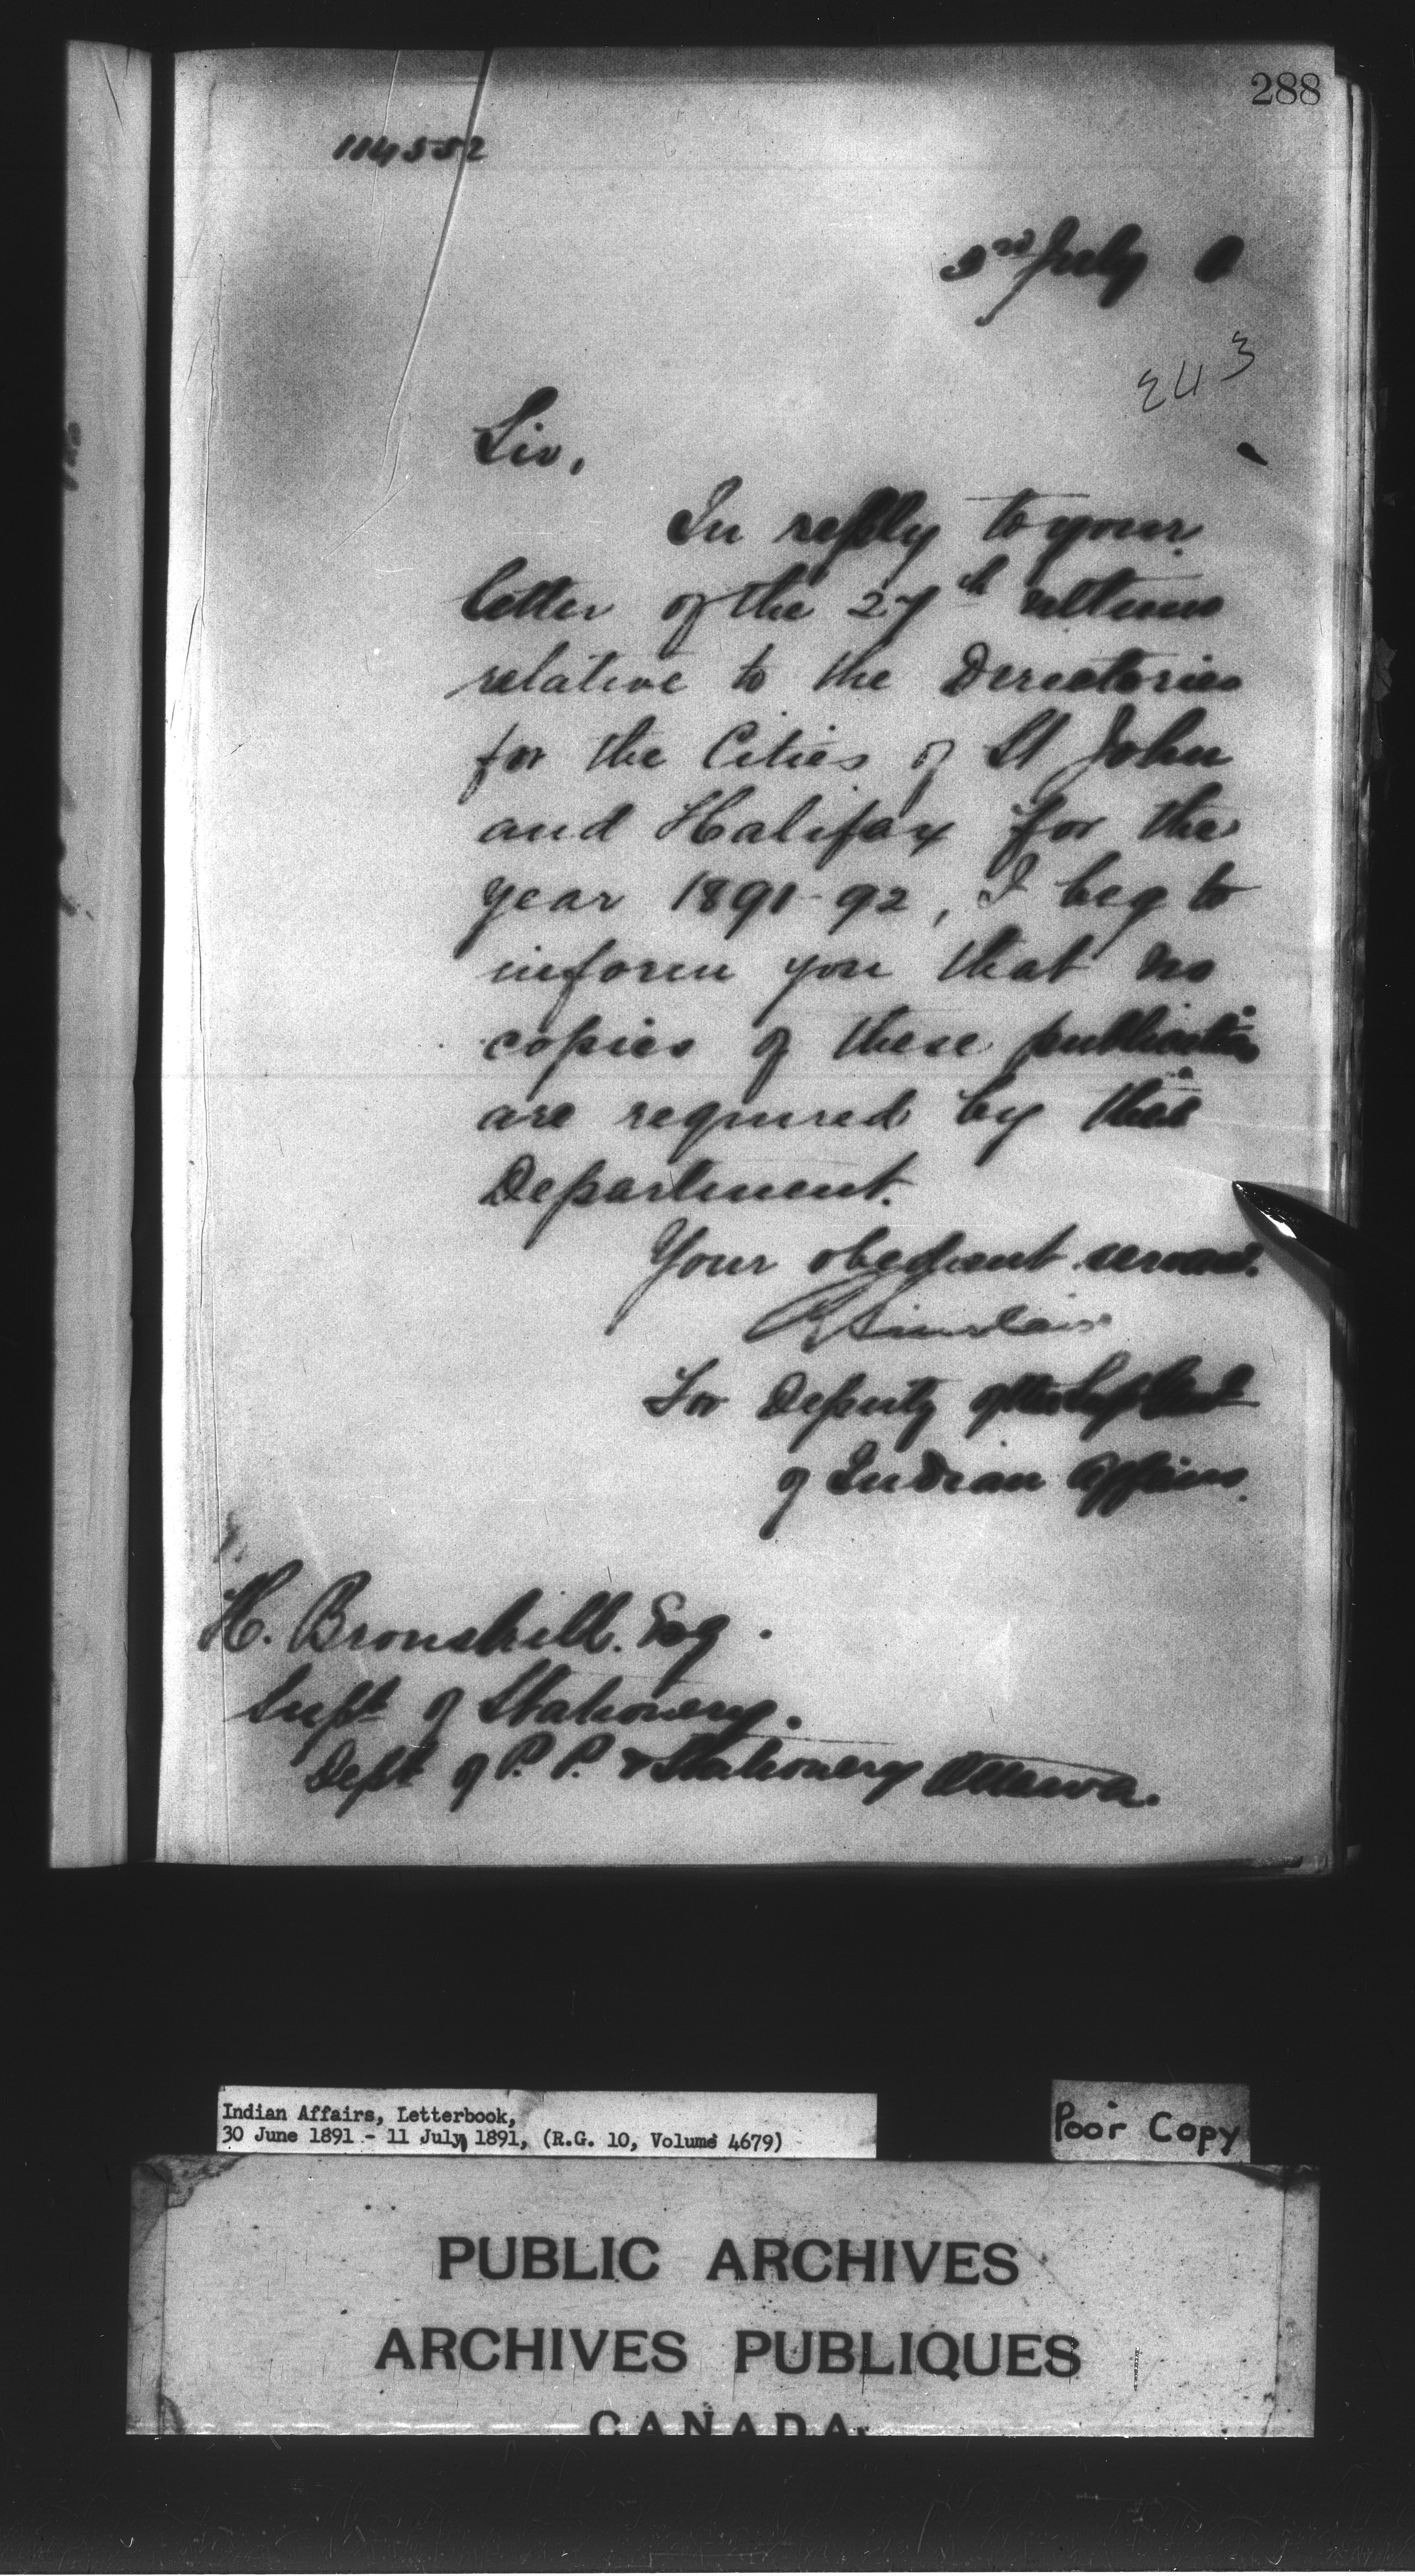 288
114552
3rd July
243
Sir,
In reply to your
letter of the 27th ultimo
relative to the Directories
for the Cities of St John
and Halifax for the
year 1891-92, I beg to
inform you that no
copies of these publications
are required by this
Department.
Your obedient servant.
R Sinclair
For Deputy of the Supt Genl
of Indian Affairs.
H. Bronskill. Esq.
Supt of Stationery.
Dept of P. P. & Stationery Ottawa.
Indian Affairs, Letterbook,
30 June 1891 - 11 July 1891, (R.G. 10, Volume 4679)
Poor Copy
PUBLIC ARCHIVES
ARCHIVES PUBLIQUES
CANADA